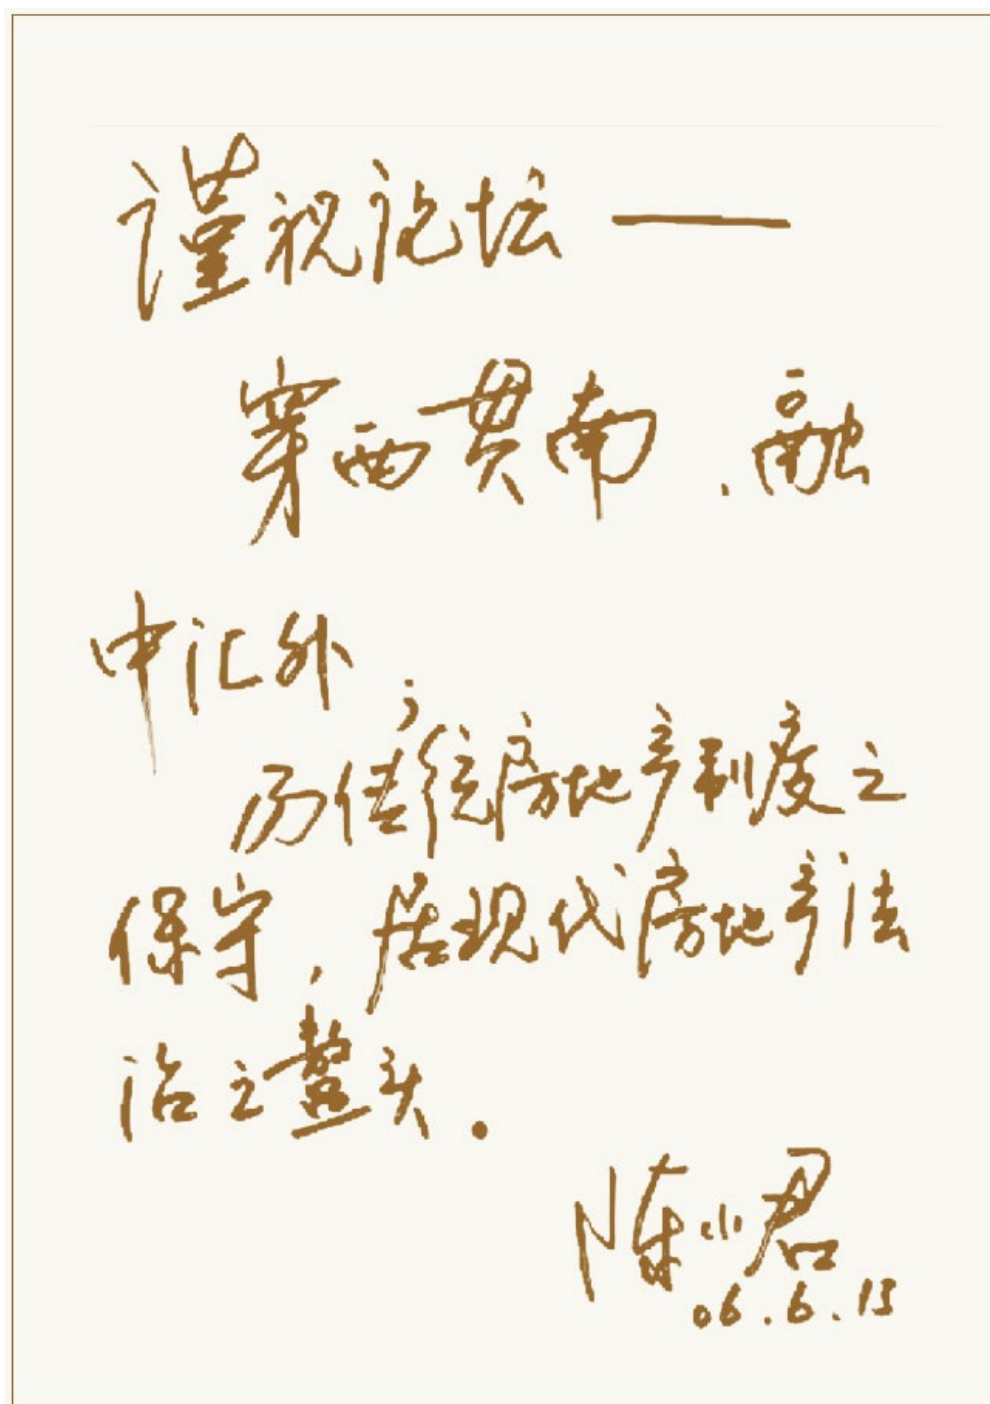 谨祝论坛——
穿西贯南，融
中汇外；
历传统房地产制度之
保守，居现代房地产法
治之鳌头。
陈小君
06.6.13